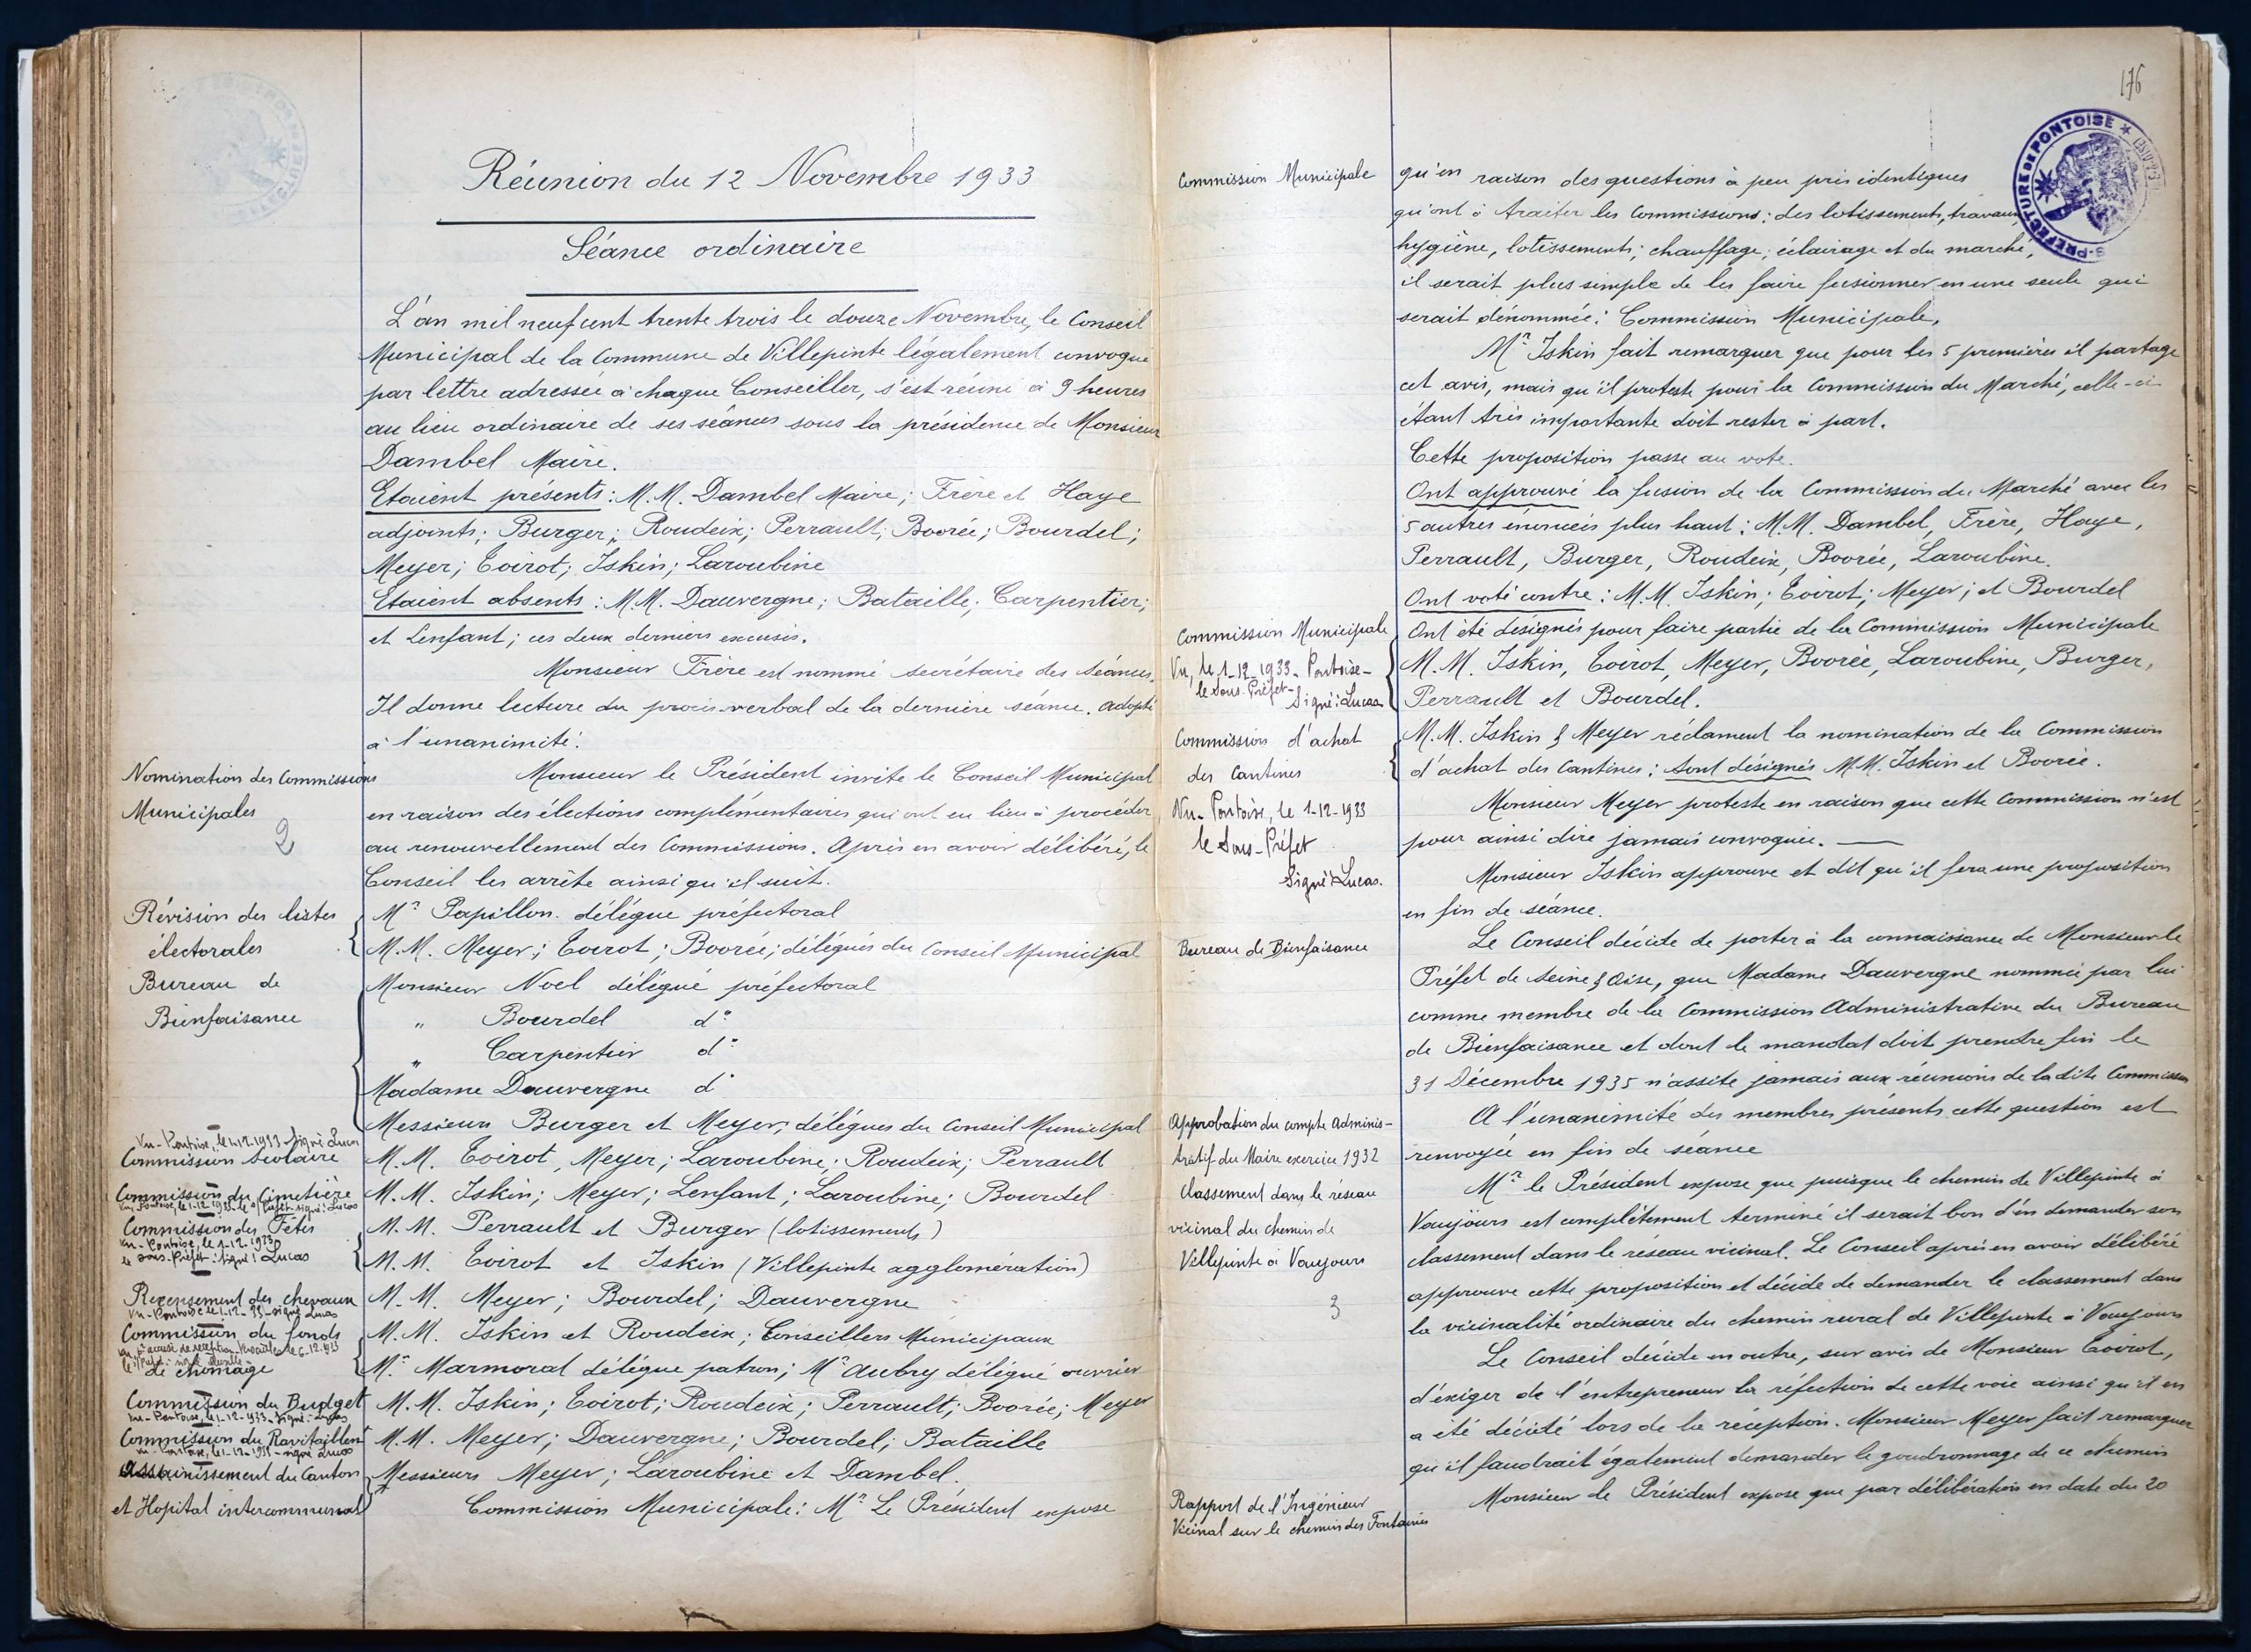 Réunion du 12 Novembre 1933
Séance ordinaire
L'an mil neuf cent trente trois le douze Novembre, le Conseil
Municipal de la Commune de Villepinte légalement convoqué
par lettre adressée à chaque Conseiller, s'est réuni à 9 heures
au lieu ordinaire de ses séances sous la présidence de Monsieur
Dambel Maire.
Etaient présents : M.M. Dambel Maire ; Frère et Haye
adjoints ; Burger ; Roudeix ; Perrault ; Boorée ; Bourdel ;
Meyer ; Coirot ; Iskin ; Laroubine
Etaient absents : M.M. Dauvergne ; Bataille ; Carpentier ;
et Lenfant ; ces deux derniers excusés.
Monsieur Frère est nommé secrétaire des séances.
Il donne lecture du procès-verbal de la dernière séance. Adopté
à l'unanimité.
Nomination des Commissions
Municipales
2
Monsieur le Président invite le Conseil Municipal
en raison des élections complémentaires qui ont eu lieu à procéder
au renouvellement des Commissions. Après en avoir délibéré, le
Conseil les arrête ainsi qu'il suit.
Révision des listes
électorales
Mr Papillon délégué préfectoral
M.M. Meyer ; Coirot ; Boorée ; délégués du Conseil Municipal
Bureau de
Bienfaisance
Monsieur Noel délégué préfectoral
" Bourdel d°
" Carpentier d°
Madame Dauvergne d°
Messieurs Burger et Meyer, délégués du Conseil Municipal
Vu - Pontoise, le 1-12-1933 - Signé Lucas
Commission Scolaire
M.M. Coirot, Meyer ; Laroubine ; Roudeix ; Perrault
Commission du Cimetière
M.M. Iskin ; Meyer ; Lenfant ; Laroubine ; Bourdel
Vu, Pontoise, le 1-12-1933 - le s/Préfet signé : Lucas
Commission des Fêtes
M.M. Perrault et Burger (lotissements)
Vu - Pontoise, le 1-12-1933
le sous-Préfet : Signé : Lucas
M.M. Coirot et Iskin (Villepinte agglomération)
Recensement des chevaux
M.M. Meyer ; Bourdel ; Dauvergne
Vu - Pontoise le 1-12-33 - signé Lucas
Commission du fonds
M.M. Iskin et Roudeix ; Conseillers Municipaux
de chômage
Mr Marmorat délégué patron ; Mr Aubry délégué ouvrier
Commission du Budget
M.M. Iskin ; Coirot ; Roudeix ; Perrault ; Boorée ; Meyer
Vu - Pontoise, le 1-12-933 - Signé : Lucas
Commission du Ravitaillent
M.M. Meyer ; Dauvergne ; Bourdel ; Bataille
Vu - Pontoise, le 1-12-1933 - signé Lucas
Assainissement du Canton
et Hopital intercommunal
Messieurs Meyer ; Laroubine et Dambel.
Commission Municipale : Mr Le Président expose
176
S-PREFECTURE DE PONTOISE
Commission Municipale
qu'en raison des questions à peu près identiques
qu'ont à traiter les Commissions : des lotissements, travaux,
hygiène, lotissements ; chauffage ; éclairage et du marché,
il serait plus simple de les faire fusionner en une seule qui
serait dénommée : Commission Municipale.
Mr Iskin fait remarquer que pour les 5 premières il partage
cet avis, mais qu'il proteste pour la Commission du Marché, celle-ci
étant très importante doit rester à part.
Cette proposition passe au vote.
Ont approuvé la fusion de la Commission du Marché avec les
5 autres énoncés plus haut : M.M. Dambel, Frère, Haye,
Perrault, Burger, Roudeix, Boorée, Laroubine.
Ont voté contre : M.M. Iskin ; Coirot ; Meyer ; et Bourdel
Commission Municipale
Vu, le 1-12-1933 - Pontoise -
le Sous-Préfet -
Signé : Lucas
Ont été désignés pour faire partie de la Commission Municipale
M.M. Iskin, Coirot, Meyer, Boorée, Laroubine, Burger,
Perrault et Bourdel.
Commission d'achat
des Cantines
Vu - Pontoise, le 1-12-1933
le Sous-Préfet
Signé : Lucas.
M.M. Iskin & Meyer réclament la nomination de la Commission
d'achat des Cantines ; sont désignés M.M. Iskin et Boorée.
Monsieur Meyer proteste en raison que cette Commission n'est
pour ainsi dire jamais convoquée.
Monsieur Iskin approuve et dit qu'il fera une proposition
en fin de séance.
Bureau de Bienfaisance
Le Conseil décide de porter à la connaissance de Monsieur le
Préfet de Seine & Oise, que Madame Dauvergne nommée par lui
comme membre de la Commission Administrative du Bureau
de Bienfaisance et dont le mandat doit prendre fin le
31 Décembre 1935 n'assite jamais aux réunions de la dite Commission
Approbation du compte Adminis-
tratif du Maire exercice 1932
A l'unanimité des membres présents cette question est
renvoyée en fin de séance
Classement dans le réseau
vicinal du chemin de
Villepinte à Vaujours
3
Mr le Président expose que puisque le chemin de Villepinte à
Vaujours est complètement terminé il serait bon d'en demander son
classement dans le réseau vicinal. Le Conseil après en avoir délibéré
approuve cette proposition et décide de demander le classement dans
la vicinalité ordinaire du chemin rural de Villepinte à Vaujours
Le Conseil décide en outre, sur avis de Monsieur Coirot,
d'exiger de l'entrepreneur la réfection de cette voie ainsi qu'il en
a été décidé lors de la réception. Monsieur Meyer fait remarquer
qu'il faudrait également demander le goudronnage de ce chemin
Rapport de l'Ingénieur
Vicinal sur le chemin des Fontaines
Monsieur le Président expose que par délibération en date du 20